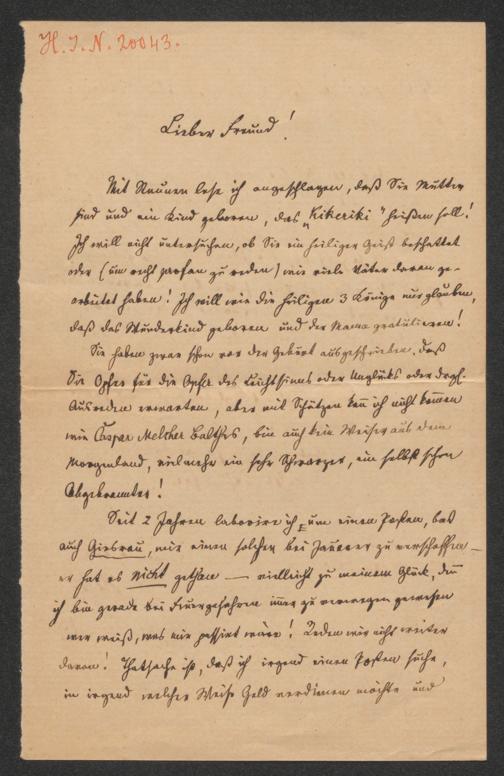 H. I. N. 20043.
Lieber Freund!
Mit Staunen lese ich angeschlagen, daß Sie Mutter
sind und ein Kind geboren, das „Kikeriki" heißen soll!
Ich will nicht untersuchen, ob Sie ein heiliger Geist beschattet
oder (um recht profan zu reden) wie viele Väter daran ge-
arbeitet haben! Ich will wie die heiligen 3 Könige nur glauben,
daß das Wunderkind geboren und der Mama gratulieren!
Sie haben zwar schon vor der Geburt ausgeschrieben, daß
Sie Opfer für die Opfer des Leichtsinns oder Unglücks oder drgl.
Ausreden erwarten, aber mit Schätzen kann ich nicht kommen
wie Caspar Melcher Balthes, bin auch kein Weiser aus dem
Morgenland, vielmehr ein sehr Schwarzer, ein selbst schon
Abgebrannter!
Seit 2 Jahren laborire ich um einen Posten, bat
auch Giesrau, mir einen solchen bei zu verschaffen —
er hat es nicht gethan — vielleicht zu meinem Glück, denn
ich bin gerade bei Feuergefahren immer zu verwegen gewesen
wer weiß, was mir passirt wäre! Reden wir nicht weiter
davon! Thatsache ist, daß ich irgend einen Posten suche,
in irgend welcher Weise Geld verdienen möchte und